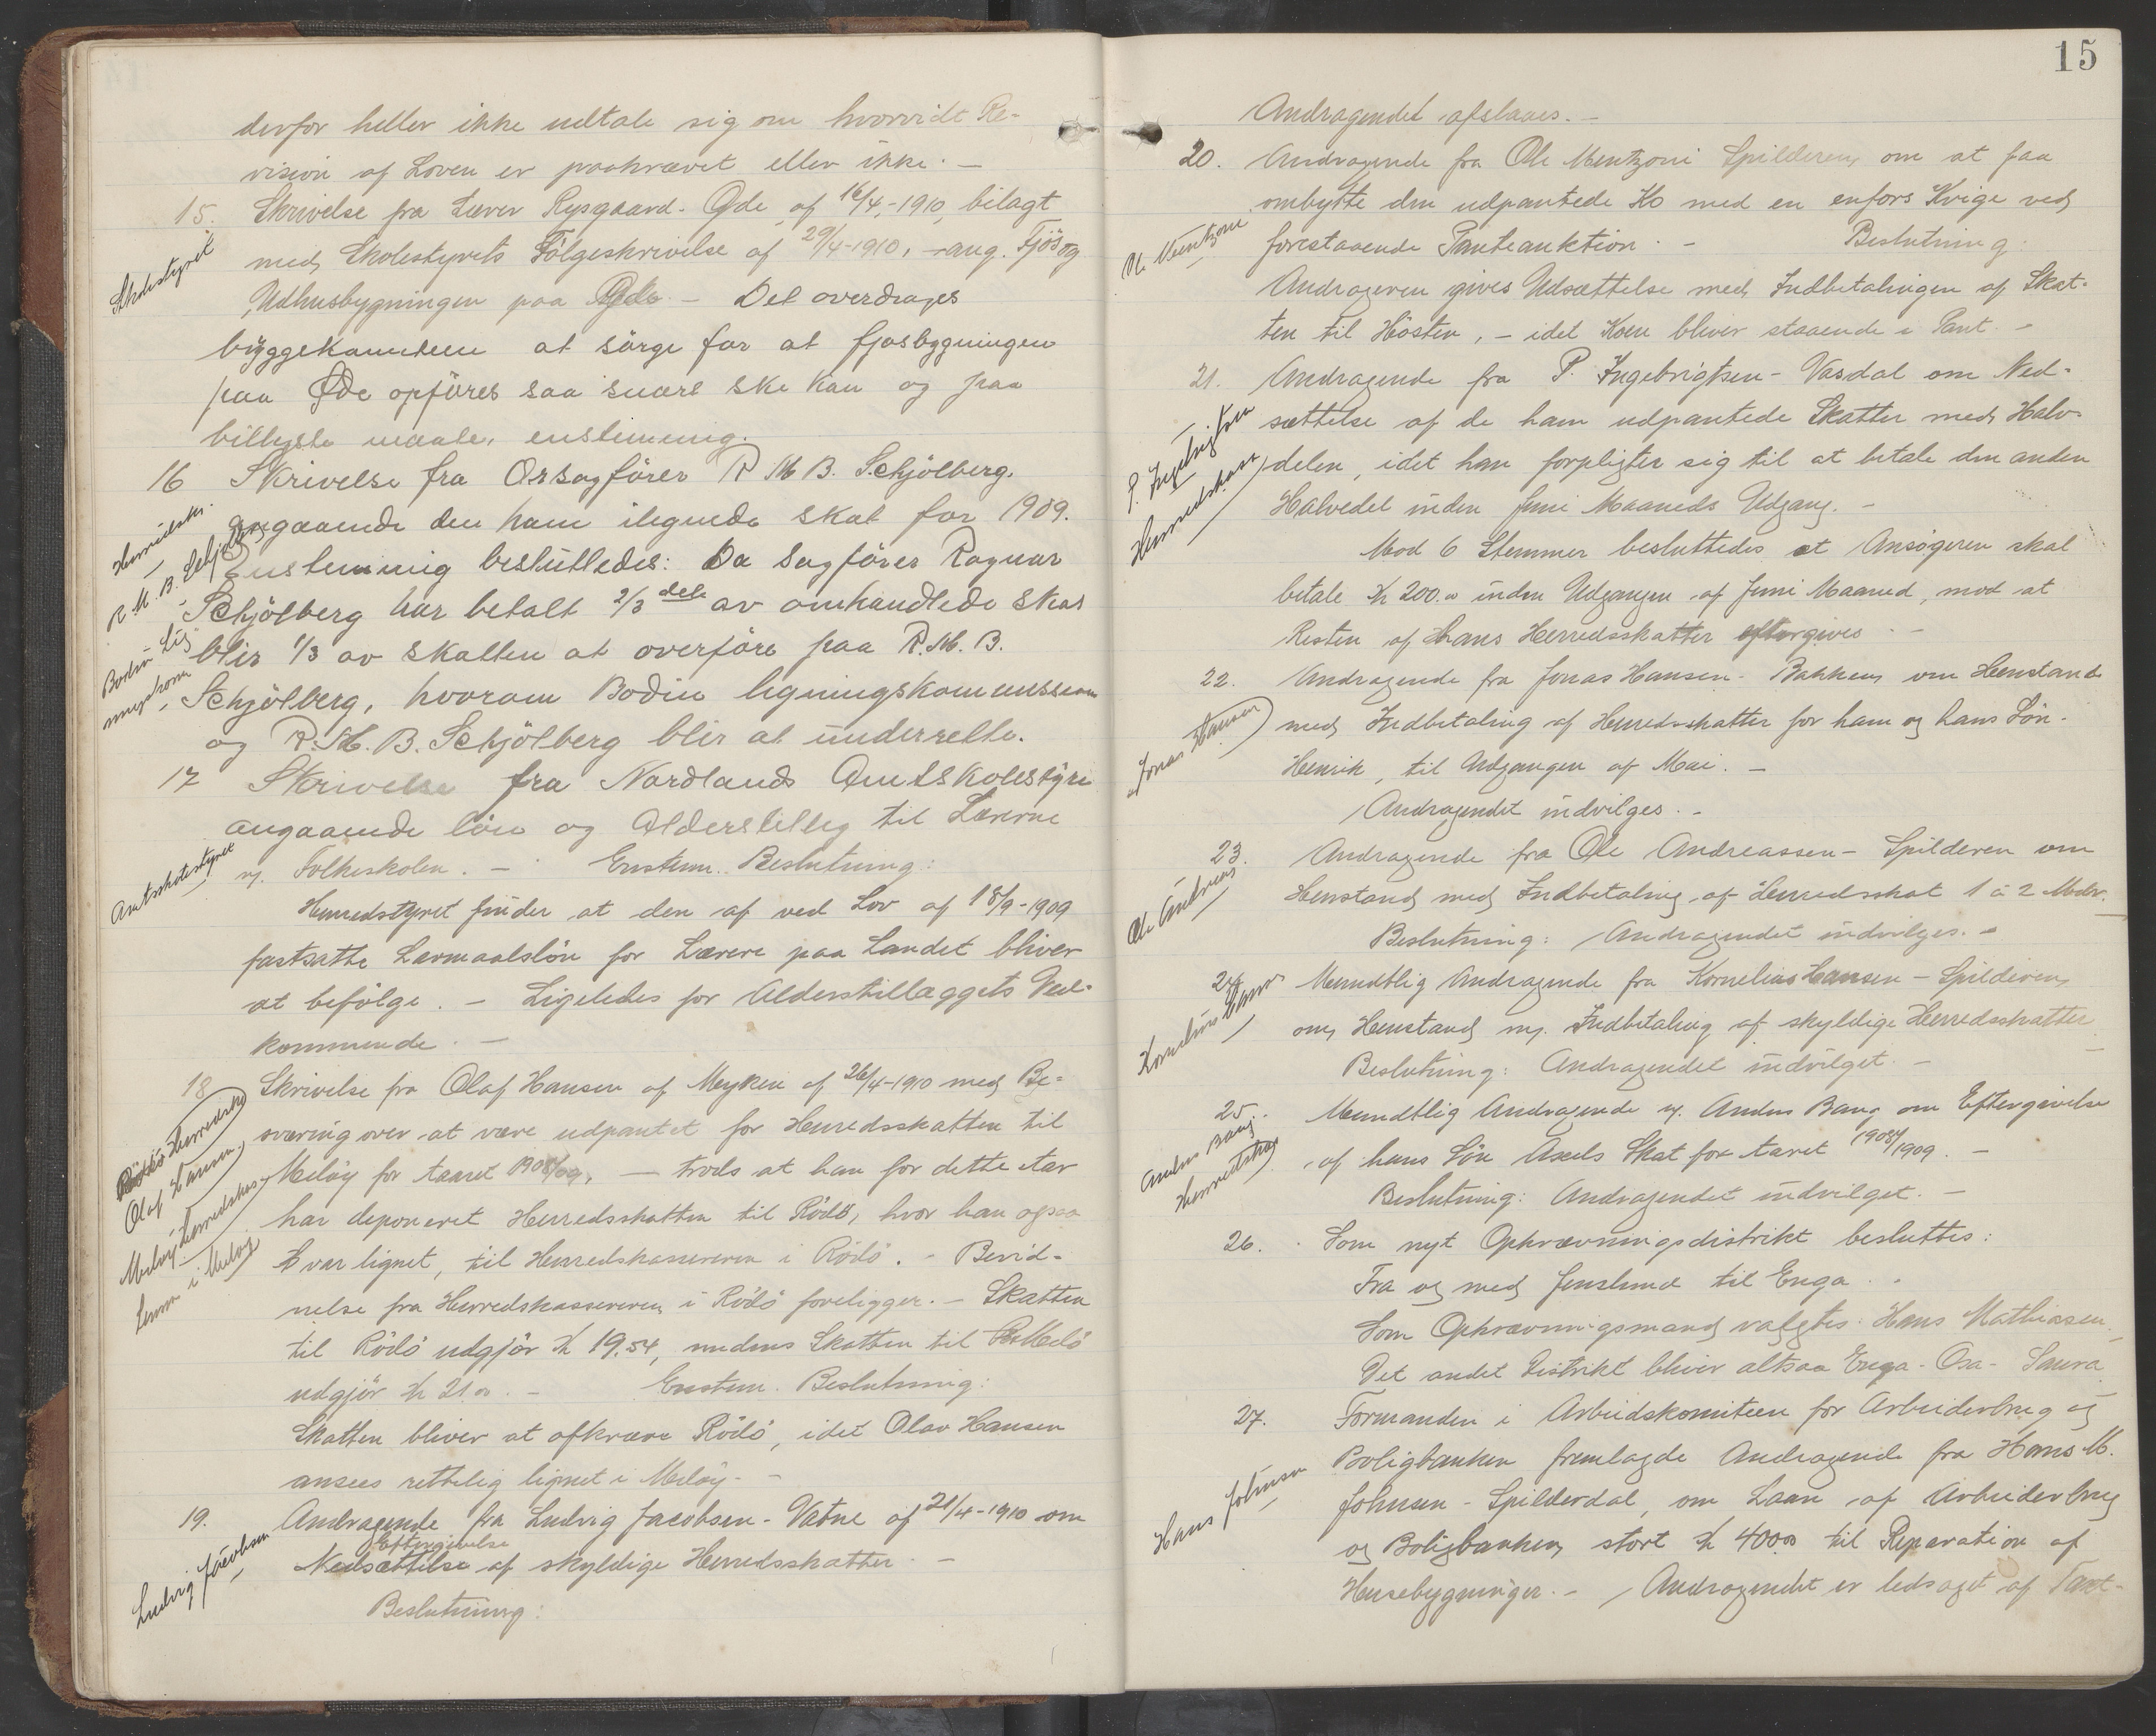 derfor heller ikke udtale sig om hvorvidt Re-
vision af Loven er paakrævet eller ikke. —
15. Skrivelse fra Lærer Rysgaard - Øde af 16/4,-1910, bilagt
Skolestyret
med Skolestyrets Følgeskrivelse af 29/4-1910, - ang. Fjös og
Udhusbygningen paa Øde. - Det overdrages
byggekomiteen at sörge for at fjosbygningen
paa Øde opföres saa snart ske kan og paa
billigste maate. enstemmig.
16 Skrivelse fra Orsagförer R M. B. Schjölberg.
Herredsk.
angaaende den ham ilignede skat for 1909.
R. M. B. Schjölberg
Enstemmig besluttedes: Da Sagförer Ragnar
Schjölberg har betalt 2/3 dele av omhandlede skat
Bodin Lig
blir 1/3 av skatten at overföre paa R. M. B.
Schjölberg, hvorom Bodin ligningskommission
og R. M. B. Schjölberg blir at underrette.
17 Skrivelse fra Nordlands Amtskolestyre
angaaende lön og Alderstillæg til Lærerne
Amtsskolestyret
v. Folkeskolen. - Enstem. Beslutning:
Herredstyret finder at den af ved Lov af 18/9-1909
fastsatte Lærmaalslön for Lærere paa Landet bliver
at befölge. - Ligeledes for Alderstillæggets Ved-
kommende. —
18 Skrivelse fra Olaf Hansen af Myken af 26/4-1910 med Be-
Rödö Herredsk
sværing over at være udpantet for Herredsskatten til
Olaf Hansen,
Melöy for Aaret 1908/09, - trods at han for dette Aar
Melöy Herredskas-
har deponeret Herredsskatten til Rödö, hvor han ogsaa
i Melöy
var lignet, til Herredskassereren i Rödö. - Bevid-
nelse fra Herredskassereren i Rödö foreligger. - Skatten
til Rödö udgjör Kr 19.54, medens Skatten til Melö
udgjör Kr 21.00. - Enstem. Beslutning:
Skatten bliver at afkræve Rödö, idet Olav Hansen
ansees rettelig lignet i Melöy. -
19. Andragende fra Ludvig Jacobsen - Vatne af 21/4-1910 om
Eftergivelse
Ludvig Jacobsen
Nedsættelse af skyldige Herredsskatter. —
Beslutning:
15
Andragendet afslaaes. -
20. Andragende fra Ole Mentzoni Spilderen, om at faa
ombytte den udpantede Ko med en enfors Kvige ved
Ol. Mentzoni
forestaaende Panteauktion. - Beslutning:
Andrageren gives Udsættelse med Indbetalingen af Skat-
ten til Hösten, - idet Koen bliver staaende i Pant. -
21. Andragende fra P. Ingebrigtsen - Vasdal om Ned-
sættelse af de ham udpantede Skatter med Halv-
P. Ingebrigtsen
delen, idet han forpligter sig til at betale den anden
Herredskass
Halvedel inden Juni Maaneds Udgang. -
Mod 6 Stemmer besluttedes at Ansögeren skal
betale Kr 200.00 inden Udgangen af Juni Maaned, mod at
Resten af Hans Herredsskatter eftergives. -
22. Andragende fra Jonas Hansen - Bakken om Henstand
med Indbetaling af Herredsskatter for ham og hans Sön
Jonas Hansen
Henrik, til Udgangen af Mai. -
Andragendet indvilges. -
23. Andragende fra Ole Andreassen - Spilderen om
Henstand med Indbetaling af Herredsskat 1 à 2 Mdr.
Ole Andreas
Beslutning: Andragendet indvilges. -
24 Mundtlig Andragende fra Kornelius Hansen - Spilderen,
Kornelius Hans
om Henstand m. Indbetaling af skyldige Herredsskatter
Beslutning: Andragendet indvilget. -
25. Mundtlig Andragende v. Anders Bang om Eftergivelse
Anders Bang.
af hans Sön Axels Skat for Aaret 1908/1909. -
Herredskas
Beslutning: Andragendet indvilget. -
26. Som nyt Opkrævningsdistrikt besluttes:
Fra og med Jenslund til Enga. -
Som Opkrævningsmand valgtes: Hans Mathiasen
Det andet Distrikt bliver altsaa Enga - Osa - Saura.
27. Formanden i Arbeidskomiteen for Arbeiderbrug og
Boligbanken fremlagde Andragende fra Hans M.
Hans Johnsen
Johnsen - Spilderdal, om Laan af Arbeiderbrug
og Boligbanken, stort Kr 400.00 til Reparation af
Husebygninger. - Andragendet er ledsaget af Taxt-